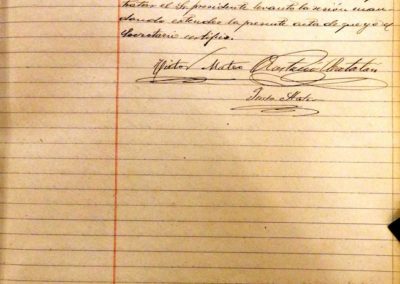 tratar el Sr presidente levanta la sesión man
dando estender la presente acta de que yo el
Secretario certifico.
Victor Mateo
Mateo